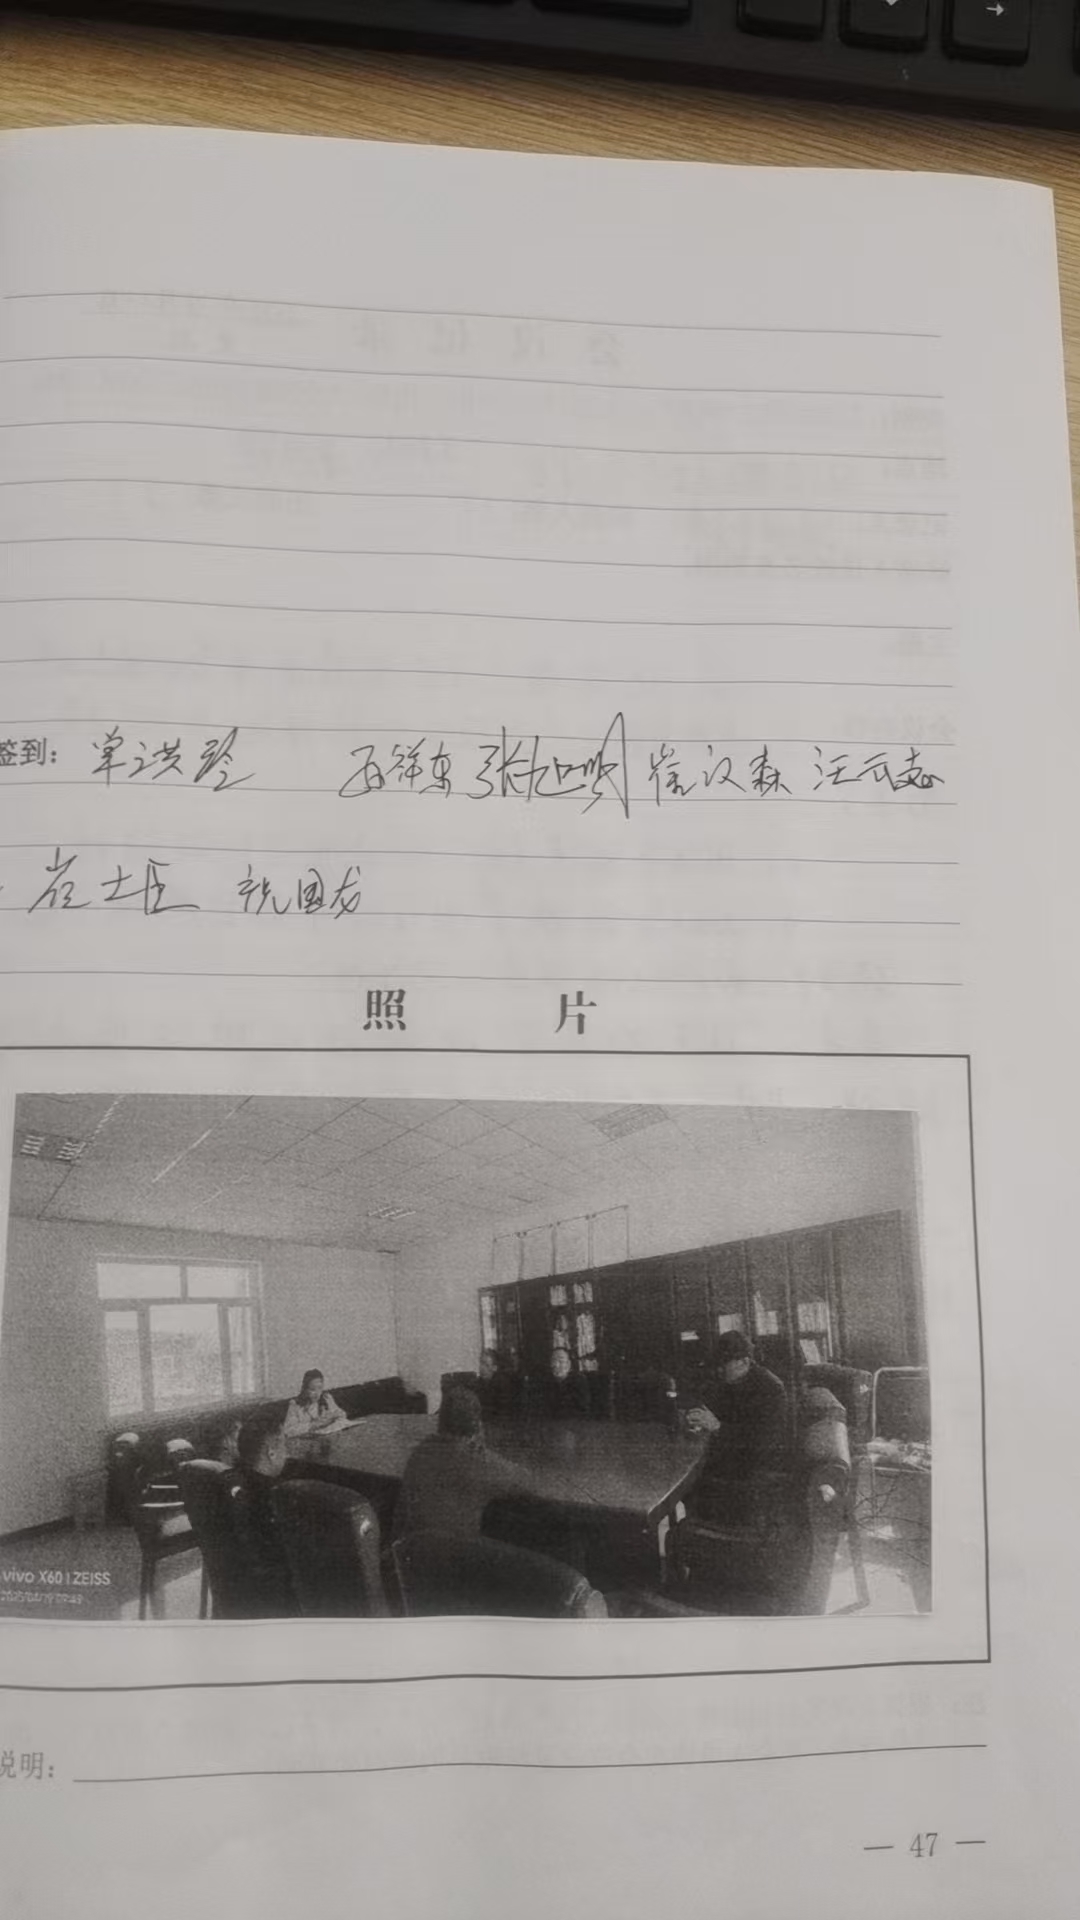 签到: 单洪玲 张旭明 崔汉森 汪云志
崔士臣 祝国龙
照 片
vivo X60 | ZEISS
说明:
— 47 —